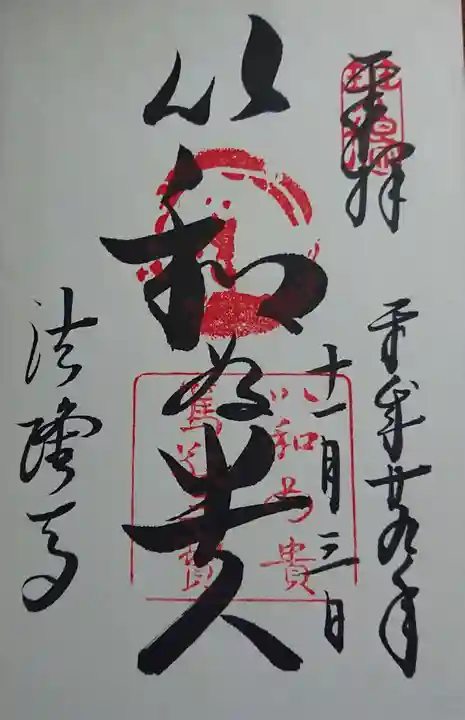 奉拝
平成廿九年
十一月三日
以和為貴
以和為貴
篤敬三寳
法隆寺